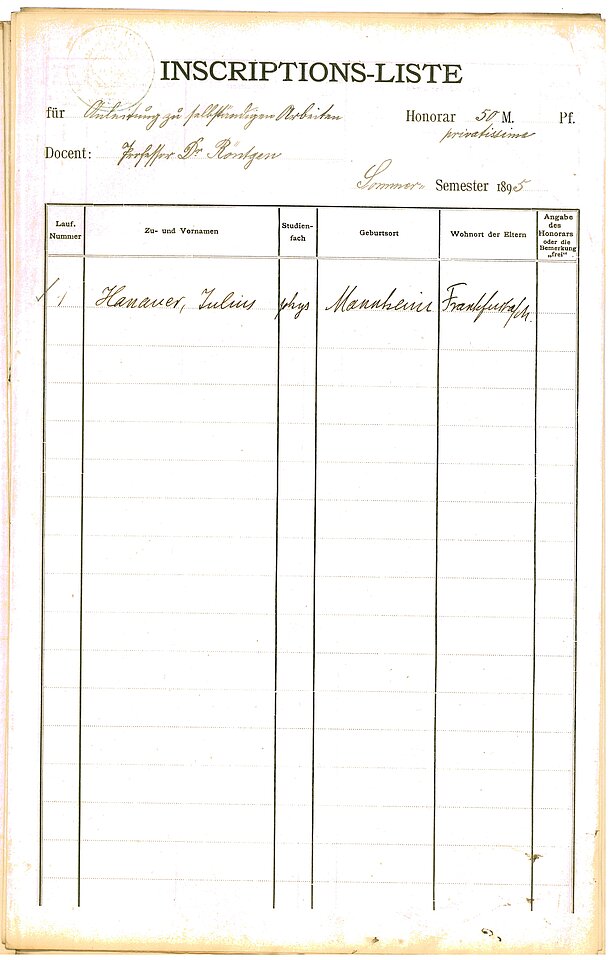 INSCRIPTIONS-LISTE
für Anleitung zu selbständigen Arbeiten Honorar 50 M. Pf.
privatissime
Docent: Professor Dr Röntgen
Sommer- Semester 1895
Lauf. Nummer Zu- und Vornamen Studien-fach Geburtsort Wohnort der Eltern Angabe des Honorars oder die Bemerkung „frei"
1 Hanauer, Julius phys Mannheim Frankfurt a/M.